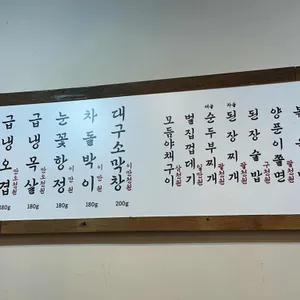 급냉오겹
180g
급냉목살
180g
눈꽃항정
이만원
180g
차돌박이
이만원
180g
대구소막창
200g
모듬야채구이
벌집껍데기
순두부찌개
팔천원
차돌
된장찌개
팔천원
된장술밥
양푼이쫄면